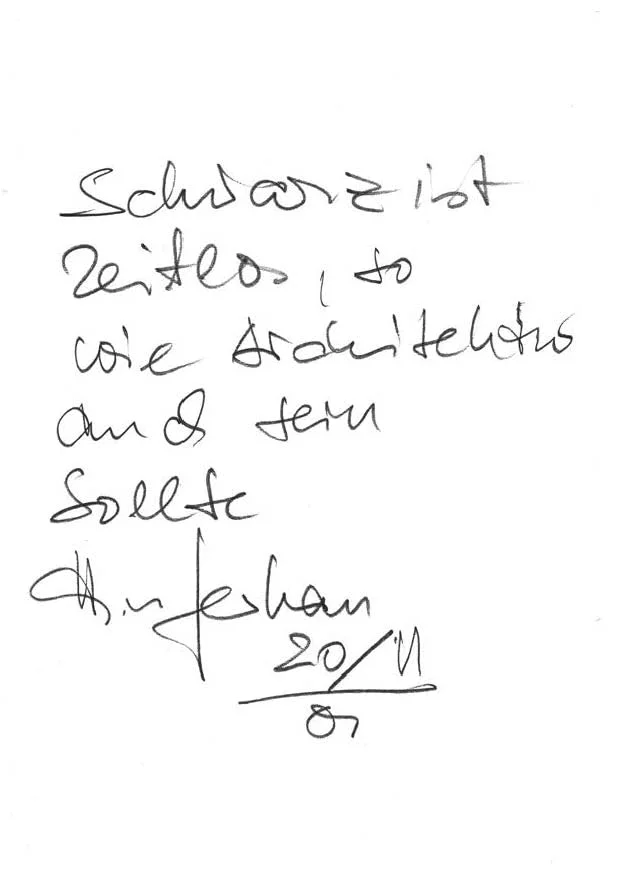 Schwarz ist
Zeitlos, so
wie Architektur
auch sein
sollte
20/11